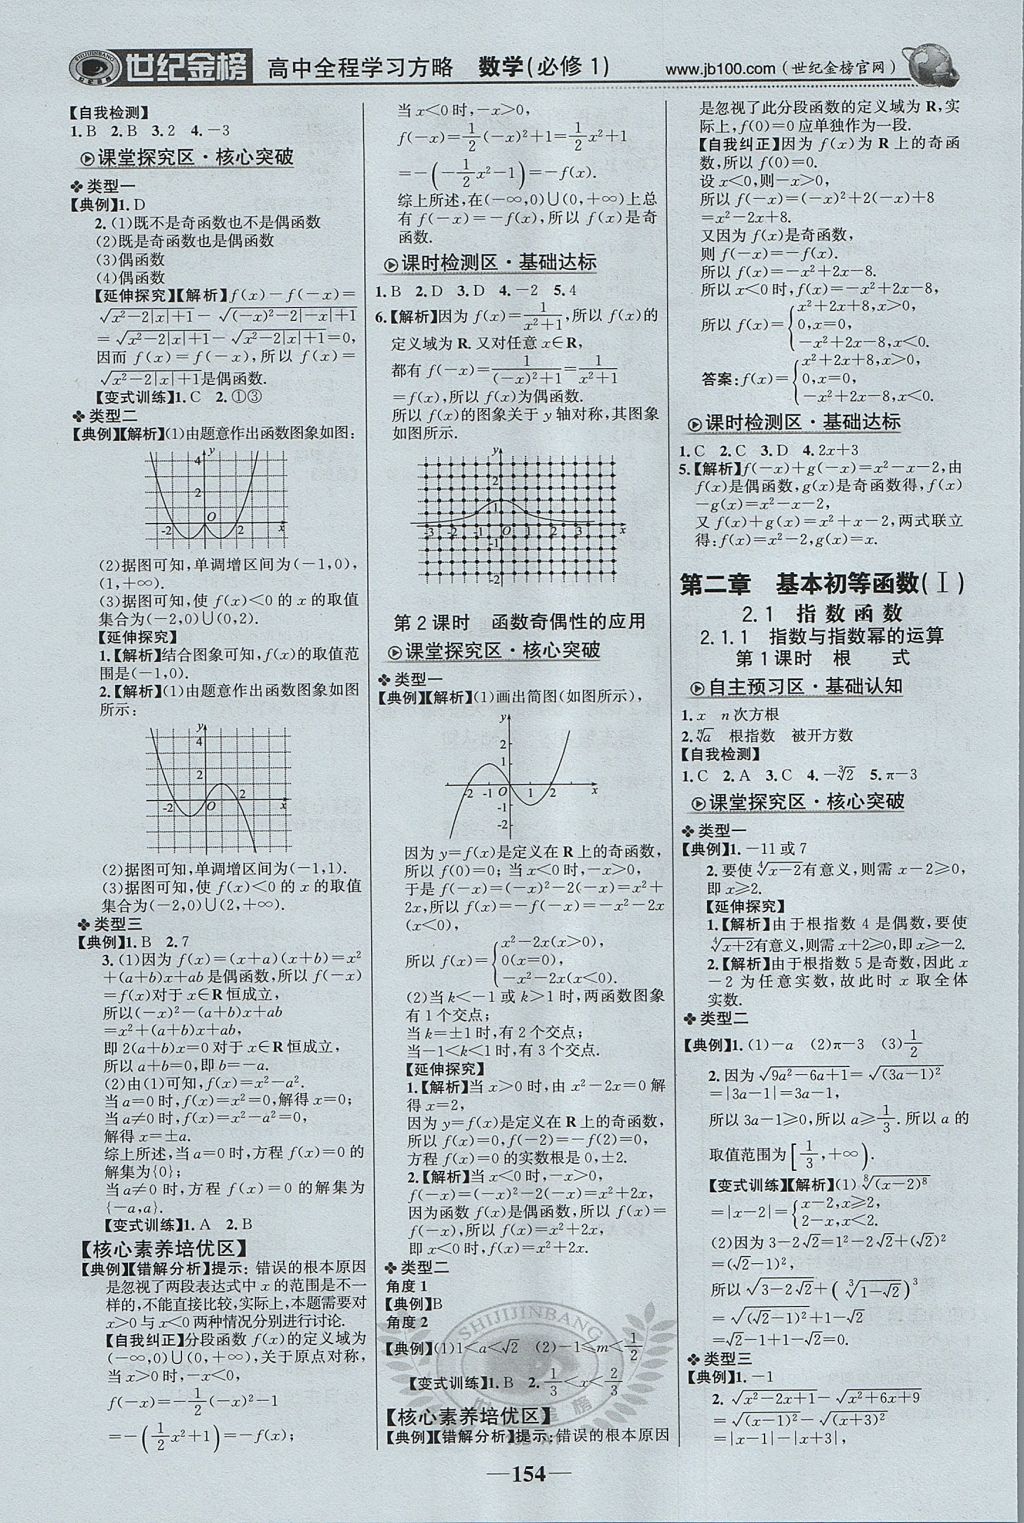 世纪金榜 高中全程学习方略 数学(必修1) www.jb100.com(世纪金榜官网)
【自我检测】
1.B 2.B 3.2 4.-3
课堂探究区·核心突破
类型一
【典例】1.D
2.(1)既不是奇函数也不是偶函数
(2)既是奇函数也是偶函数
(3)偶函数
(4)偶函数
【延伸探究】【解析】f(x)-f(-x)=
√(x²-2|x|+1)-√((-x)²-2|-x|+1)
=√(x²-2|x|+1)-√(x²-2|x|+1)=0,
因而f(x)=f(-x),所以f(x)=
√(x²-2|x|+1)是偶函数.
【变式训练】1.C 2.①③
类型二
【典例】【解析】(1)由题意作出函数图象如图:
y
4
2
-2 O 2 x
(2)据图可知,单调增区间为(-1,0),
(1,+∞).
(3)据图可知,使f(x)<0的x的取值
集合为(-2,0)∪(0,2).
【延伸探究】
1.【解析】结合图象可知,f(x)的取值范
围是(-1,0).
2.【解析】(1)由题意作出函数图象如图
所示:
y
4
2
-2 O 2 x
(2)据图可知,单调增区间为(-1,1).
(3)据图可知,使f(x)<0的x的取值
集合为(-2,0)∪(2,+∞).
类型三
【典例】1.B 2.7
3.(1)因为f(x)=(x+a)(x+b)=x²
+(a+b)x+ab是偶函数,所以f(-x)
=f(x)对于x∈R恒成立,
所以(-x)²-(a+b)x+ab
=x²+(a+b)x+ab,
即2(a+b)x=0对于x∈R恒成立,
所以a+b=0,即b=-a.
(2)由(1)可知,f(x)=x²-a².
当a=0时,f(x)=x²=0,解得x=0;
当a≠0时,f(x)=x²-a²=0,
解得x=±a.
综上所述,当a=0时,方程f(x)=0的
解集为{0};
当a≠0时,方程f(x)=0的解集为
{-a,a}.
【变式训练】1.A 2.B
【核心素养培优区】
【典例】【错解分析】提示:错误的根本原因
是忽视了两段表达式中x的范围是不一
样的,不能直接比较,实际上,本题需要对
x>0与x<0两种情况分别进行讨论.
【自我纠正】分段函数f(x)的定义域为
(-∞,0)∪(0,+∞),关于原点对称,
当x>0时,-x<0,
f(-x)=-1/2(-x)²-1
=-(1/2x²+1)=-f(x);
当x<0时,-x>0,
f(-x)=1/2(-x)²+1=1/2x²+1
=-(-1/2x²-1)=-f(x).
综上所述,在(-∞,0)∪(0,+∞)上总
有f(-x)=-f(x),所以f(x)是奇
函数.
课时检测区·基础达标
1.B 2.D 3.D 4.-2 5.4
6.【解析】因为f(x)=1/(x²+1),所以f(x)的
定义域为R.又对任意x∈R,
都有f(-x)=1/((-x)²+1)=1/(x²+1)
=f(x),所以f(x)为偶函数.
所以f(x)的图象关于y轴对称,其图象
如图所示.
y
2
1
-3 -2 -1 O 1 2 3 x
-1
-2
第2课时 函数奇偶性的应用
课堂探究区·核心突破
类型一
【典例】【解析】(1)画出简图(如图所示),
y
2
1
-2 -1 O 1 2 x
-1
-2
因为y=f(x)是定义在R上的奇函数,
所以f(0)=0;当x<0时,-x>0,
于是f(-x)=(-x)²-2(-x)=x²+
2x,所以f(x)=-f(-x)=-x²-2x
(x<0),
所以f(x)={x²-2x(x>0),
0(x=0),
-x²-2x(x<0).
(2)当k<-1或k>1时,两函数图象
有1个交点;
当k=±1时,有2个交点;
当-1<k<1时,有3个交点.
【延伸探究】
1.【解析】当x>0时,由x²-2x=0解
得x=2,
因为y=f(x)是定义在R上的奇函数,
所以f(x)=0,f(-2)=-f(2)=0,
方程f(x)=0的实数根是0,±2.
2.【解析】当x<0时,-x>0,
f(-x)=(-x)²-2(-x)=x²+2x,
因为函数f(x)是偶函数,所以f(x)=
f(-x),所以f(x)=x²+2x,
即当x<0时,f(x)=x²+2x.
类型二
角度1
【典例】B
角度2
【典例】(1)1<a<√2 (2)-1≤m<1/2
【变式训练】1.B 2.1/3<x<2/3
【核心素养培优区】
【典例】【错解分析】提示:错误的根本原因
是忽视了此分段函数的定义域为R,实
际上,f(0)=0应单独作为一段.
【自我纠正】因为f(x)为R上的奇函
数,所以f(0)=0.
设x<0,则-x>0,
所以f(-x)=(-x)²+2(-x)+8
=x²-2x+8.
又因为f(x)是奇函数,
则f(-x)=-f(x).
所以f(x)=-x²+2x-8,
所以x<0时,f(x)=-x²+2x-8,
所以f(x)={x²+2x+8,x>0,
0,x=0,
-x²+2x-8,x<0.
答案:f(x)={x²+2x+8,x>0,
0,x=0,
-x²+2x-8,x<0.
课时检测区·基础达标
1.C 2.C 3.D 4.2x+3
5.【解析】f(-x)+g(-x)=x²-x-2,由
f(x)是偶函数,g(x)是奇函数得,f(x)
-g(x)=x²-x-2,
又f(x)+g(x)=x²+x-2,两式联立
得:f(x)=x²-2,g(x)=x.
第二章 基本初等函数(Ⅰ)
2.1 指数函数
2.1.1 指数与指数幂的运算
第1课时 根 式
自主预习区·基础认知
1.x n次方根
2.ⁿ√a 根指数 被开方数
【自我检测】
1.C 2.A 3.C 4.-³√2 5.π-3
课堂探究区·核心突破
类型一
【典例】1.-11或7
2.要使⁴√(x-2)有意义,则需x-2≥0,
即x≥2.
【延伸探究】
1.【解析】由于根指数4是偶数,要使
⁴√(x+2)有意义,则需x+2≥0,即x≥-2.
2.【解析】由于根指数5是奇数,因此x
-2为任意实数,故此时x取全体
实数.
类型二
【典例】1.(1)-a (2)π-3 (3)1/2
2.因为√(9a²-6a+1)=√((3a-1)²)
=|3a-1|=3a-1,
所以3a-1≥0,所以a≥1/3.所以a的
取值范围为[1/3,+∞).
【变式训练】【解析】(1)⁸√((x-2)⁸)
=|x-2|={x-2,x≥2,
2-x,x<2.
(2)因为3-2√2=1²-2√2+(√2)²
=(√2-1)²,
所以√(3-2√2)+(³√(1-√2))³
=√((√2-1)²)+1-√2
=√2-1+1-√2=0.
类型三
【典例】1.-1
2.√(x²-2x+1)-√(x²+6x+9)
=√((x-1)²)-√((x+3)²)
=|x-1|-|x+3|,
SHIJIJINBANG
—154—